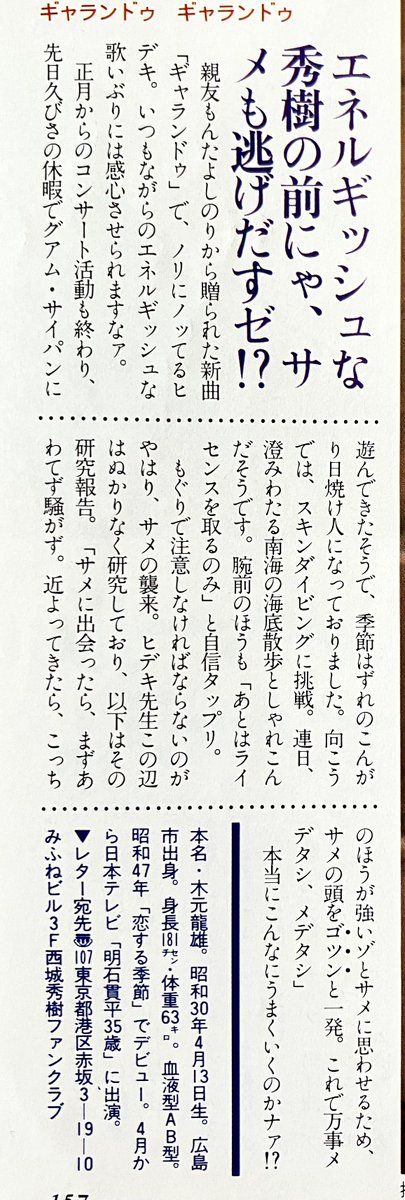 ギャランドゥ　ギャランドゥ
エネルギッシュな
秀樹の前にゃ、サ
メも逃げだすゼ!?
　親友もんたよしのりから贈られた新曲
「ギャランドゥ」で、ノリにノッてるヒ
デキ。いつもながらのエネルギッシュな
歌いぶりには感心させられますなァ。
　正月からのコンサート活動も終わり、
先日久びさの休暇でグアム・サイパンに
遊んできたそうで、季節はずれのこんが
り日焼け人になっておりました。向こう
では、スキンダイビングに挑戦。連日、
澄みわたる南海の海底散歩としゃれこん
だそうです。腕前のほうも「あとはライ
センスを取るのみ」と自信タップリ。
　もぐりで注意しなければならないのが
やはり、サメの襲来。ヒデキ先生この辺
はぬかりなく研究しており、以下はその
研究報告。「サメに出会ったら、まずあ
わてず騒がず。近よってきたら、こっち
のほうが強いゾとサメに思わせるため、
サメの頭をゴツンと一発。これで万事メ
デタシ、メデタシ」
　本当にこんなにうまくいくのかナァ!?
本名・木元龍雄。昭和30年4月13日生。広島
市出身。身長181㌢・体重63㌔。血液型AB型。
昭和47年「恋する季節」でデビュー。4月か
ら日本テレビ「明石貫平35歳」に出演。
▼レター宛先〠107東京都港区赤坂3―19―10
みふねビル3F西城秀樹ファンクラブ
157